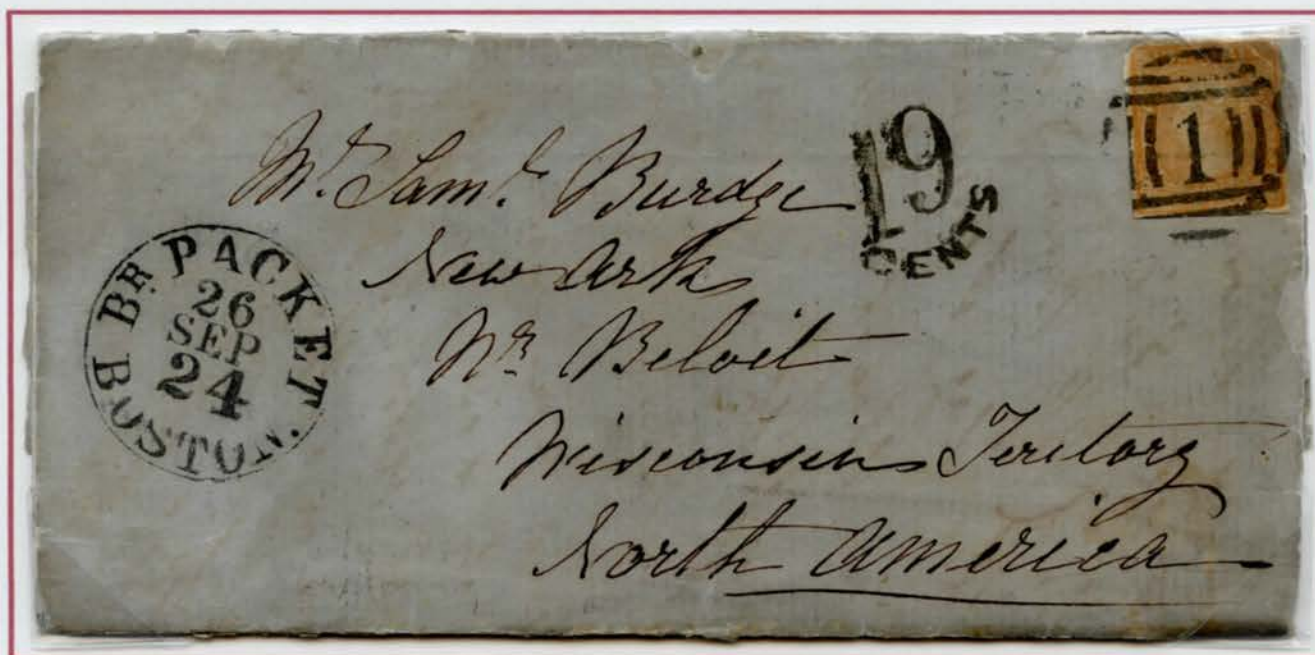 Mr. Saml. Burdge
New Ark
Nr. Beloit
Wisconsin Teritory
North America
BOSTON BR. PACKET
26
SEP
24
19
CENTS
1